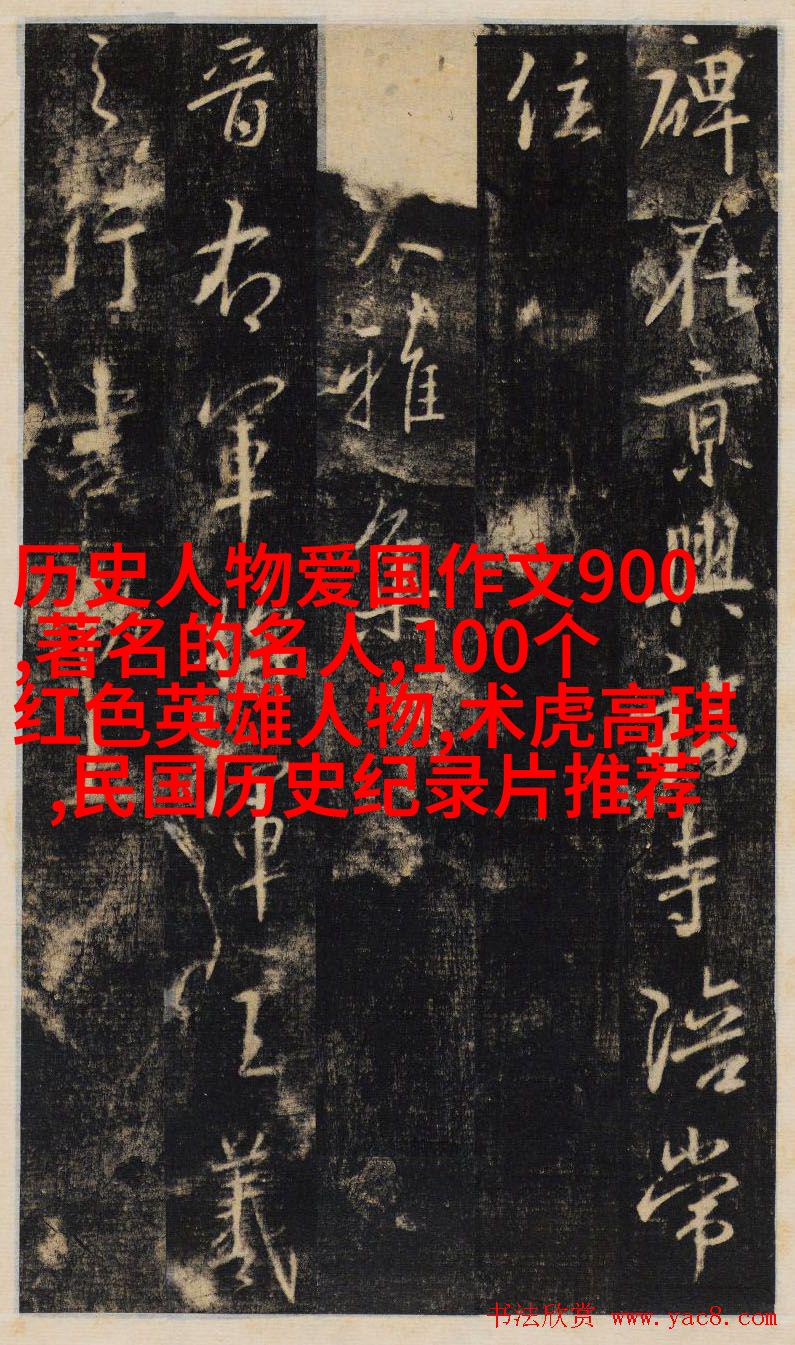 碑在京興福寺陪常
住
大雅集
晋右軍将軍王羲
之行書
历史人物爱国作文900
,著名的名人,100个
红色英雄人物,术虎高琪
,民国历史纪录片推荐
书法欣赏 www.yac8.com